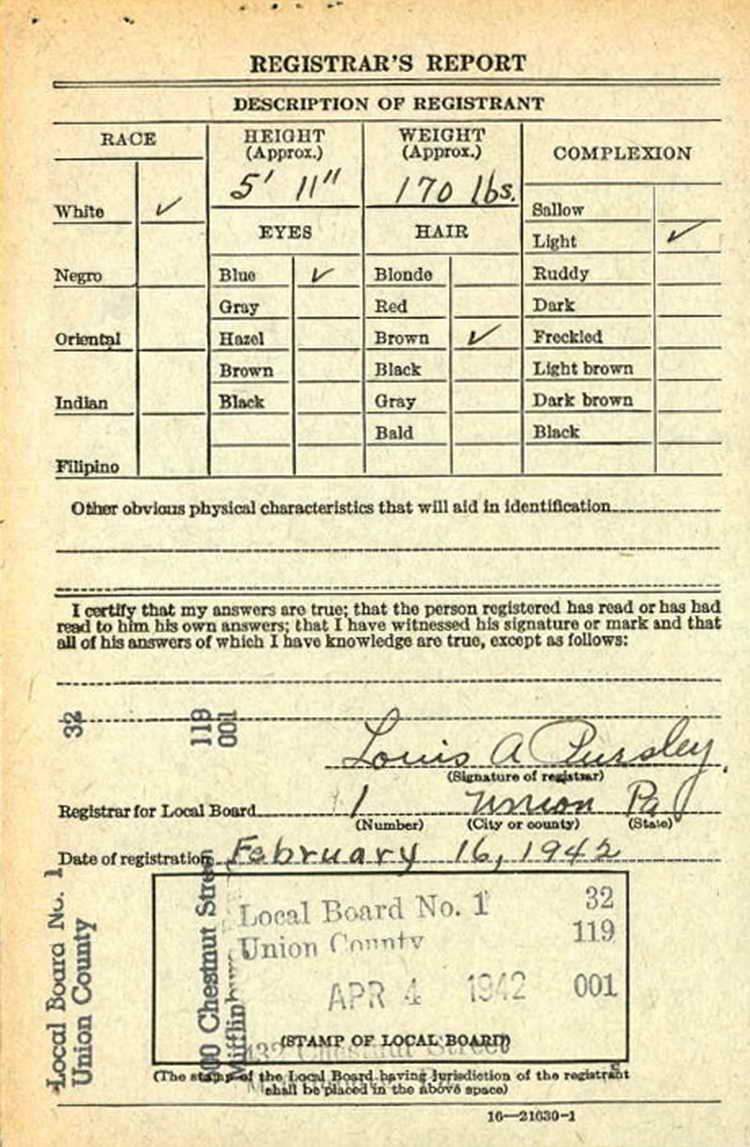 REGISTRAR'S REPORT
DESCRIPTION OF REGISTRANT
RACE
HEIGHT
(Approx.)
WEIGHT
(Approx.)
COMPLEXION
5' 11"
170 lbs.
White ✓
Sallow
EYES
HAIR
Light ✓
Negro
Blue ✓
Blonde
Ruddy
Gray
Red
Dark
Oriental
Hazel
Brown ✓
Freckled
Brown
Black
Light brown
Indian
Black
Gray
Dark brown
Bald
Black
Filipino
Other obvious physical characteristics that will aid in identification
I certify that my answers are true; that the person registered has read or has had
read to him his own answers; that I have witnessed his signature or mark and that
all of his answers of which I have knowledge are true, except as follows:
32
119
001
Louis A Pursley
(Signature of registrar)
Registrar for Local Board 1 Union Pa
(Number) (City or county) (State)
Date of registration February 16, 1942
Local Board No. 1
Union County
Chestnut Street
Local Board No. 1 32
Union County 119
APR 4 1942 001
(STAMP OF LOCAL BOARD)
432 Chestnut Street
(The stamp of the Local Board having jurisdiction of the registrant
shall be placed in the above space)
16—21630-1